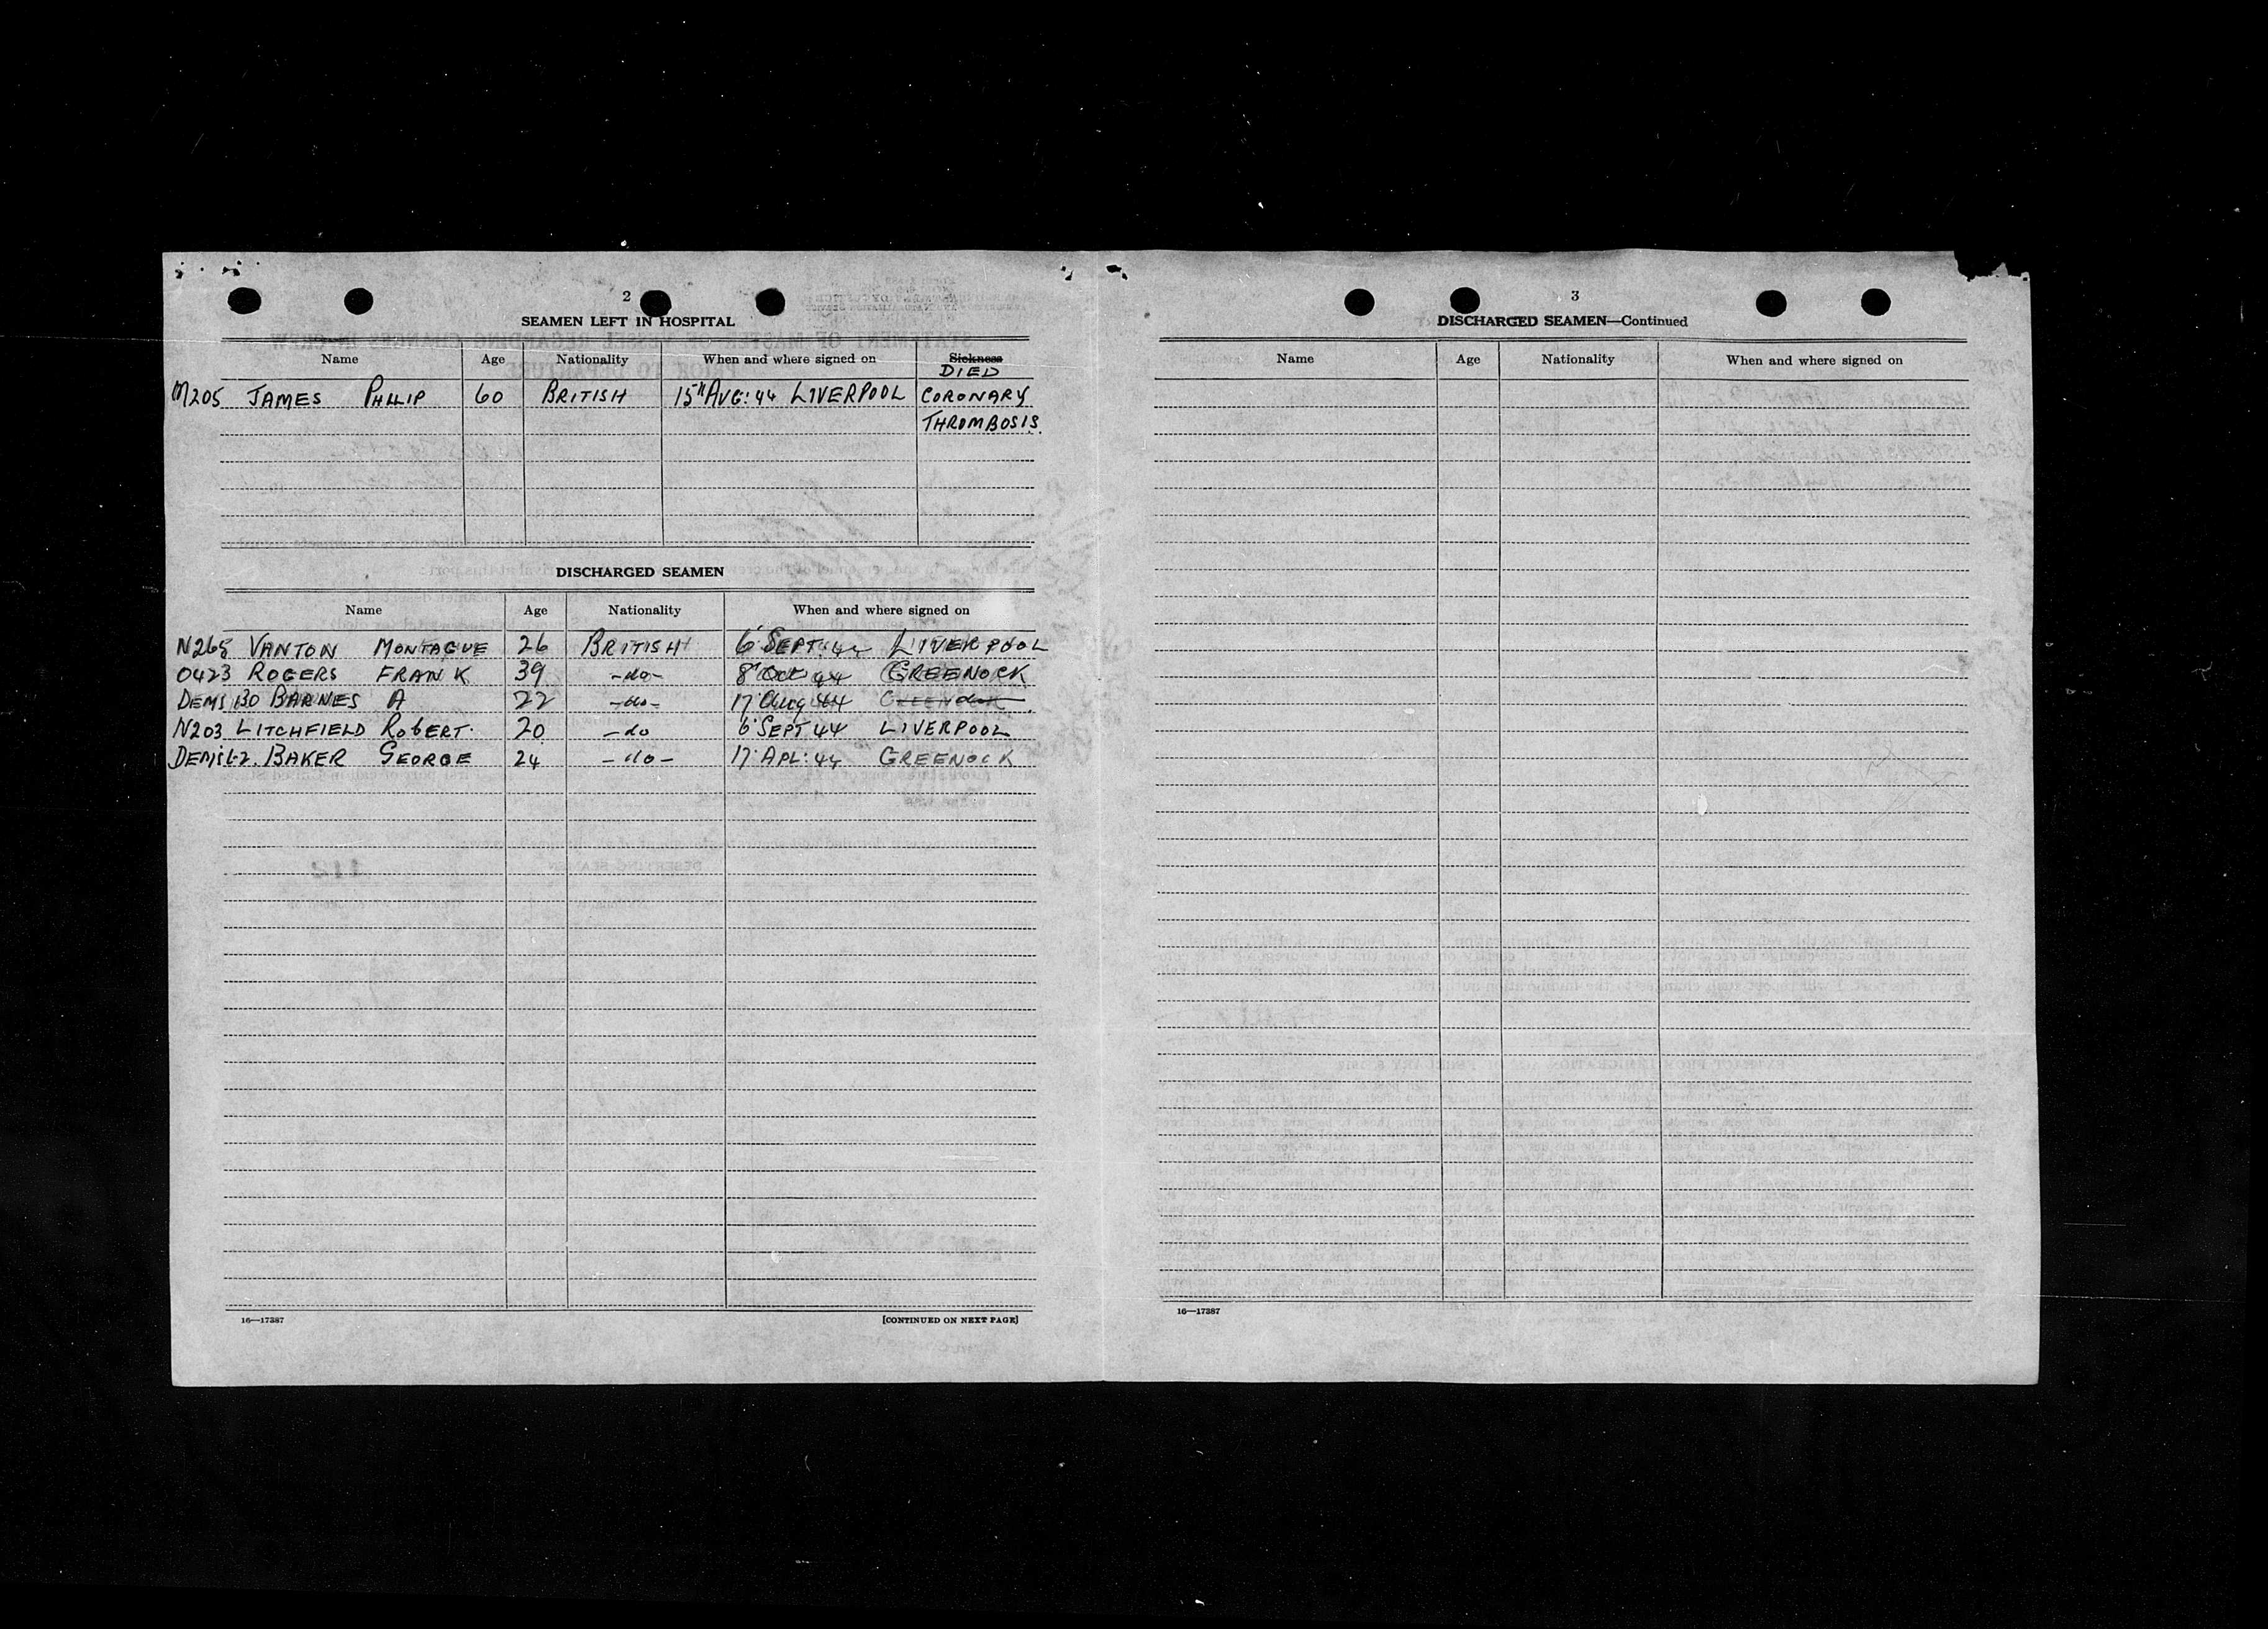 2
SEAMEN LEFT IN HOSPITAL
Name Age Nationality When and where signed on Sickness
DIED
M205 JAMES PHLLIP 60 BRITISH 15th AUG: 44 LIVERPOOL CORONARY
THROMBOSIS.
DISCHARGED SEAMEN
Name Age Nationality When and where signed on
N265 VANTON MONTAGUE 26 BRITISH 6 SEPT: 44 LIVERPOOL
0423 ROGERS FRANK 39 -do- 8 Oct 44 GREENOCK
DEMS BO BARNES A 22 -do- 17 Aug 44
N203 LITCHFIELD ROBERT. 20 -do 6 SEPT 44 LIVERPOOL
DEMS BAKER GEORGE 24 -do- 17 APL: 44 GREENOCK
16—17387 [CONTINUED ON NEXT PAGE]
3
DISCHARGED SEAMEN—Continued
Name Age Nationality When and where signed on
16—17387